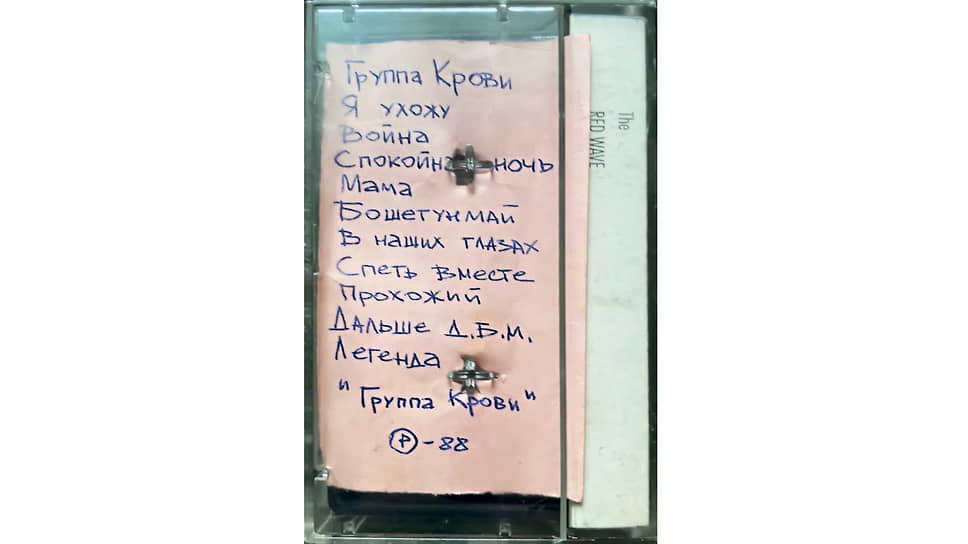 Группа Крови
Я ухожу
Война
Спокойна ночь
Мама
Бошетунмай
В наших глазах
Спеть вместе
Прохожий
Дальше Д.Б.М.
Легенда
"Группа Крови"
Ⓟ-88
The
RED WAVE